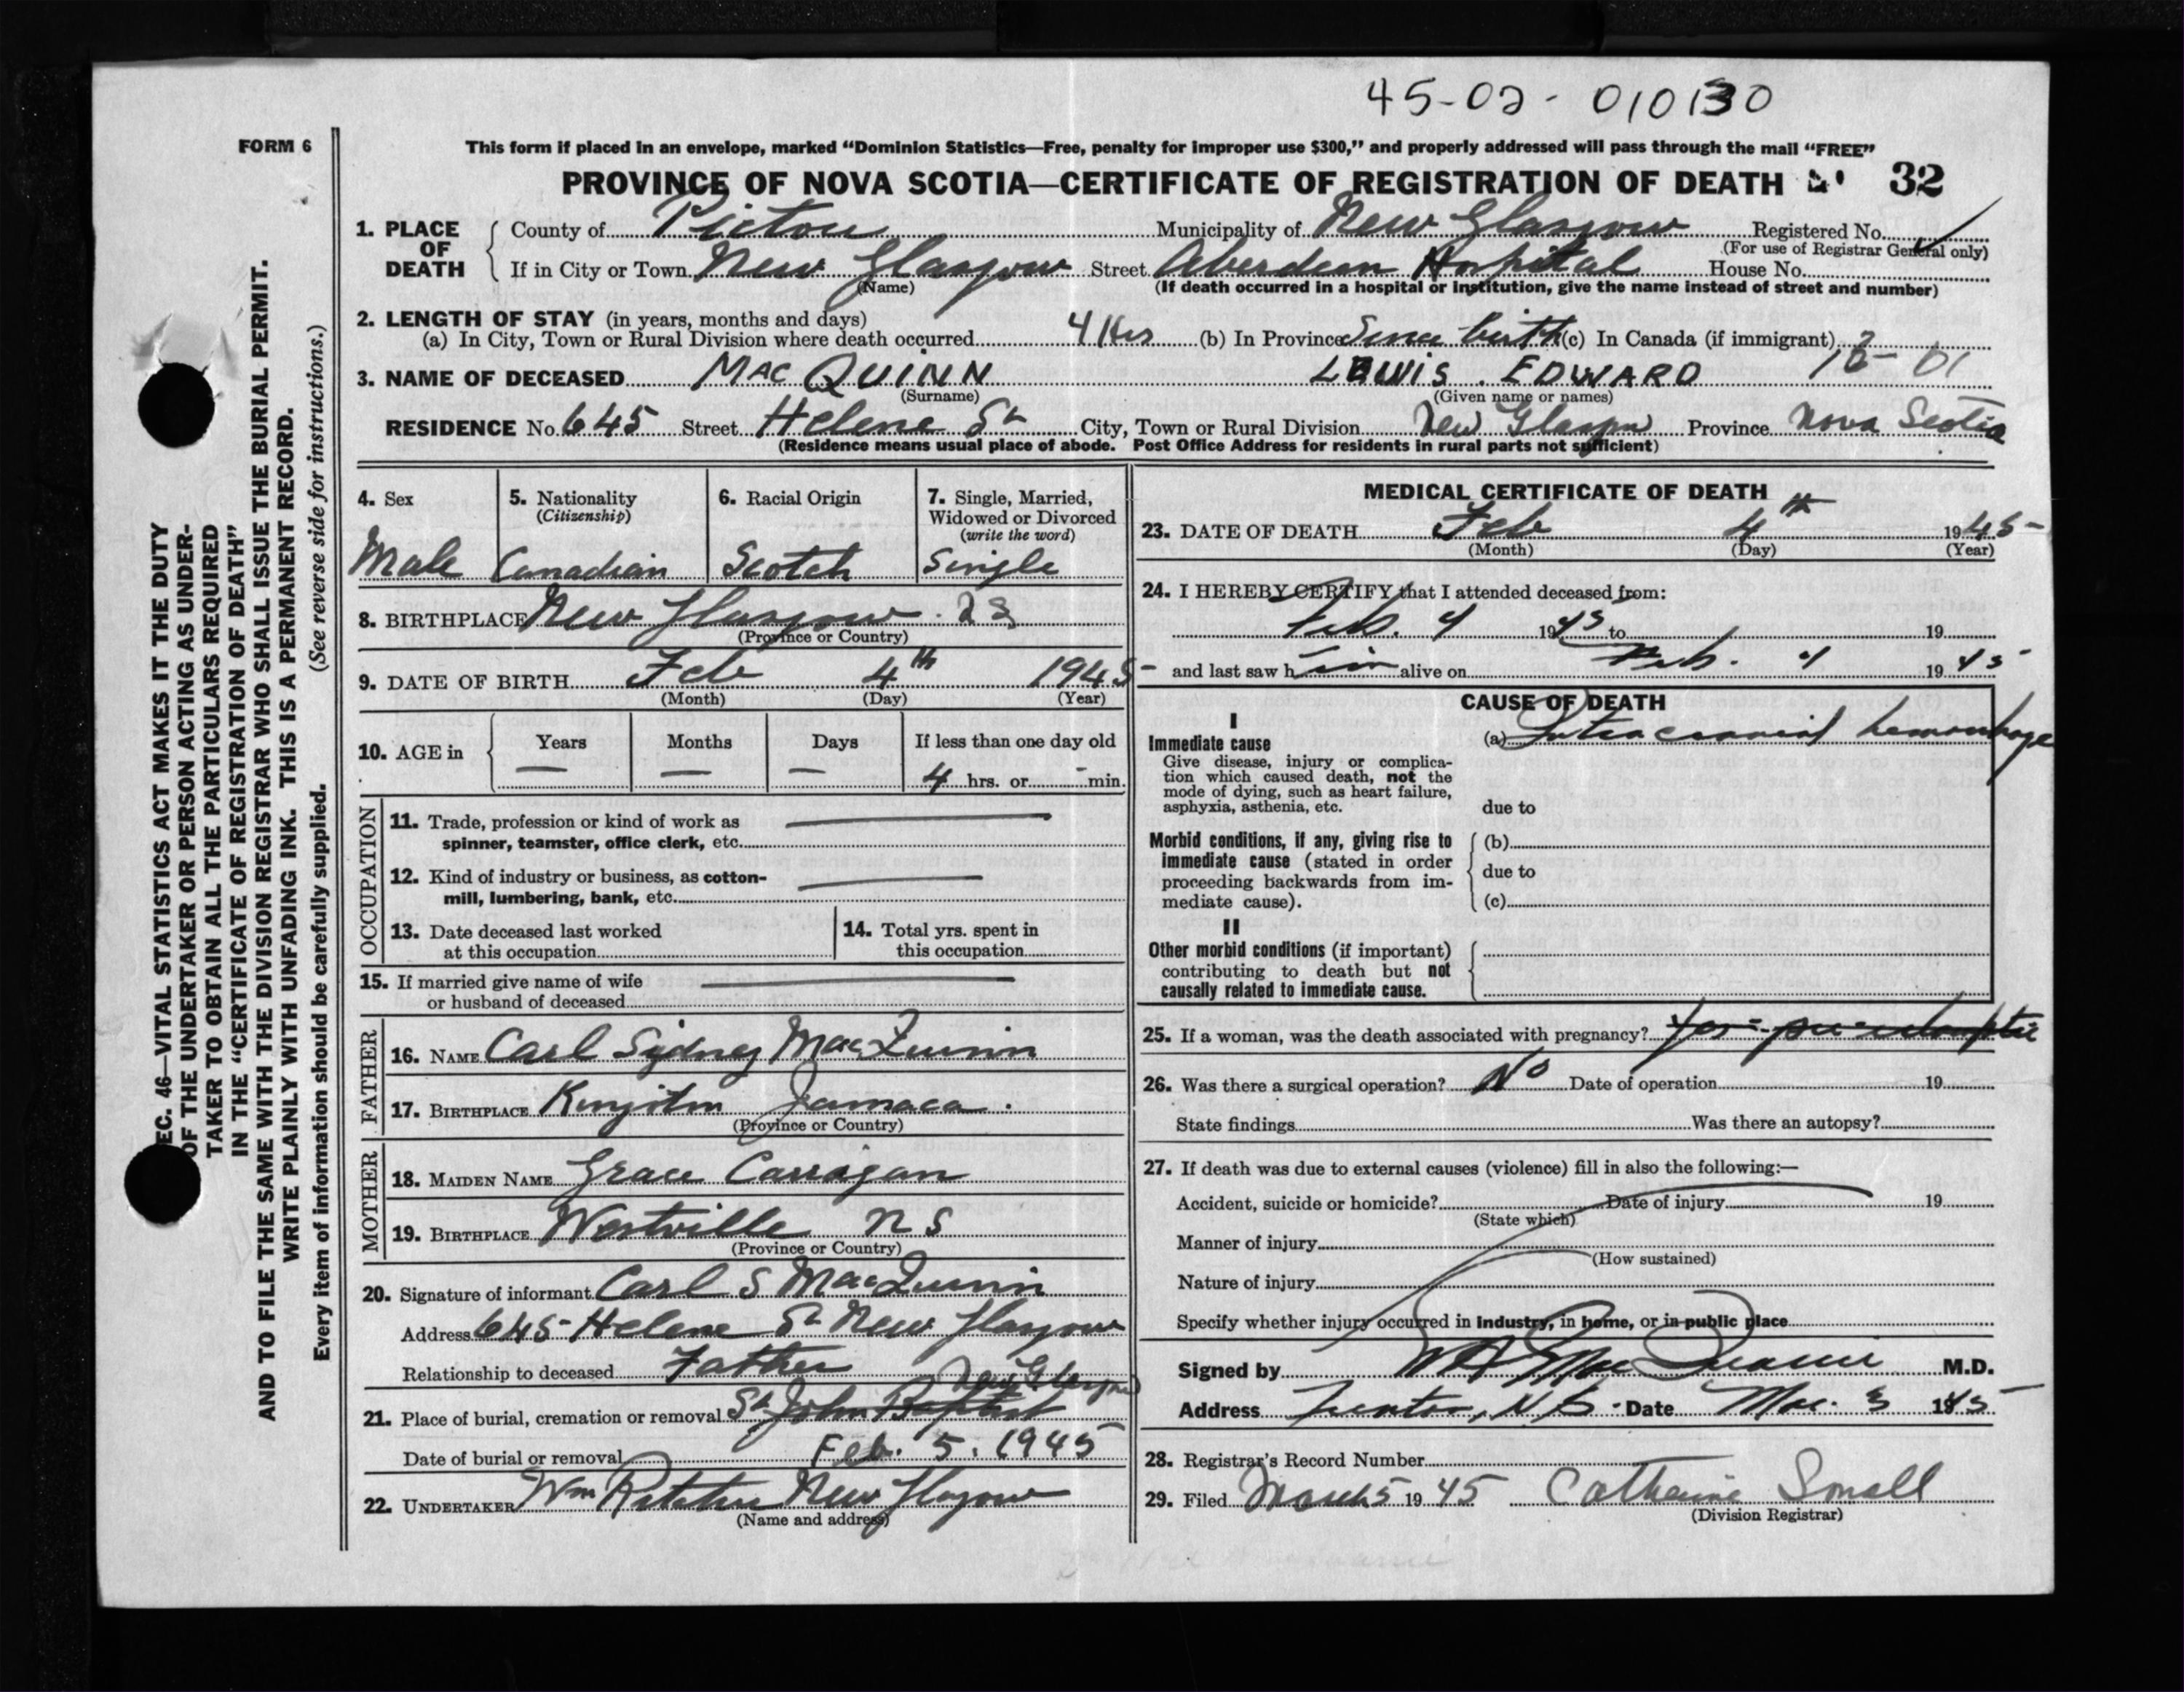 45-02-010130
FORM 6
This form if placed in an envelope, marked “Dominion Statistics—Free, penalty for improper use $300,” and properly addressed will pass through the mail “FREE”
PROVINCE OF NOVA SCOTIA—CERTIFICATE OF REGISTRATION OF DEATH 32
1. PLACE OF DEATH County of Pictou Municipality of New Glasgow Registered No.
(For use of Registrar General only)
If in City or Town New Glasgow Street Aberdeen Hospital House No.
(Name) (If death occurred in a hospital or institution, give the name instead of street and number)
2. LENGTH OF STAY (in years, months and days)
(a) In City, Town or Rural Division where death occurred 4 Hrs (b) In Province Since birth (c) In Canada (if immigrant)
3. NAME OF DECEASED MAC QUINN LEWIS EDWARD
(Surname) (Given name or names)
RESIDENCE No. 645 Street Helene St City, Town or Rural Division New Glasgow Province Nova Scotia
(Residence means usual place of abode. Post Office Address for residents in rural parts not sufficient)
4. Sex 5. Nationality (Citizenship) 6. Racial Origin 7. Single, Married, Widowed or Divorced (write the word)
Male Canadian Scotch Single
8. BIRTHPLACE New Glasgow
(Province or Country)
9. DATE OF BIRTH Feb 4th 1945
(Month) (Day) (Year)
10. AGE in Years Months Days If less than one day old
— — — 4 hrs. or - min.
OCCUPATION
11. Trade, profession or kind of work as
spinner, teamster, office clerk, etc.
12. Kind of industry or business, as cotton-
mill, lumbering, bank, etc.
13. Date deceased last worked
at this occupation
14. Total yrs. spent in
this occupation
15. If married give name of wife
or husband of deceased
FATHER
16. NAME Carl Sydney MacQuinn
17. BIRTHPLACE Kingston Jamaca.
(Province or Country)
MOTHER
18. MAIDEN NAME Grace Carragan
19. BIRTHPLACE Westville N S
(Province or Country)
20. Signature of informant Carl S MacQuinn
Address 645 Helene St New Glasgow
Relationship to deceased Father
New Glasgow
21. Place of burial, cremation or removal St John Baptist
Date of burial or removal Feb. 5. 1945
22. UNDERTAKER Wm New Glasgow
(Name and address)
MEDICAL CERTIFICATE OF DEATH
23. DATE OF DEATH Feb 4th 1945
(Month) (Day) (Year)
24. I HEREBY CERTIFY that I attended deceased from:
Feb. 4 1945 to 19
and last saw him alive on Feb. 4 1945
CAUSE OF DEATH
I
Immediate cause (a) Intracranial hemorrhage
Give disease, injury or complica-
tion which caused death, not the
mode of dying, such as heart failure,
asphyxia, asthenia, etc. due to
Morbid conditions, if any, giving rise to (b)
immediate cause (stated in order
proceeding backwards from im- due to
mediate cause). (c)
II
Other morbid conditions (if important)
contributing to death but not
causally related to immediate cause.
25. If a woman, was the death associated with pregnancy?
26. Was there a surgical operation? No Date of operation 19
State findings Was there an autopsy?
27. If death was due to external causes (violence) fill in also the following:—
Accident, suicide or homicide? Date of injury 19
(State which)
Manner of injury
(How sustained)
Nature of injury
Specify whether injury occurred in industry, in home, or in public place
Signed by M.D.
Address Trenton, N.S. Date Mar. 3 1945
28. Registrar's Record Number
29. Filed March 5 1945 Catherine Small
(Division Registrar)
SEC. 46—VITAL STATISTICS ACT MAKES IT THE DUTY
OF THE UNDERTAKER OR PERSON ACTING AS UNDER-
TAKER TO OBTAIN ALL THE PARTICULARS REQUIRED
IN THE “CERTIFICATE OF REGISTRATION OF DEATH”
AND TO FILE THE SAME WITH THE DIVISION REGISTRAR WHO SHALL ISSUE THE BURIAL PERMIT.
WRITE PLAINLY WITH UNFADING INK. THIS IS A PERMANENT RECORD.
Every item of information should be carefully supplied. (See reverse side for instructions.)